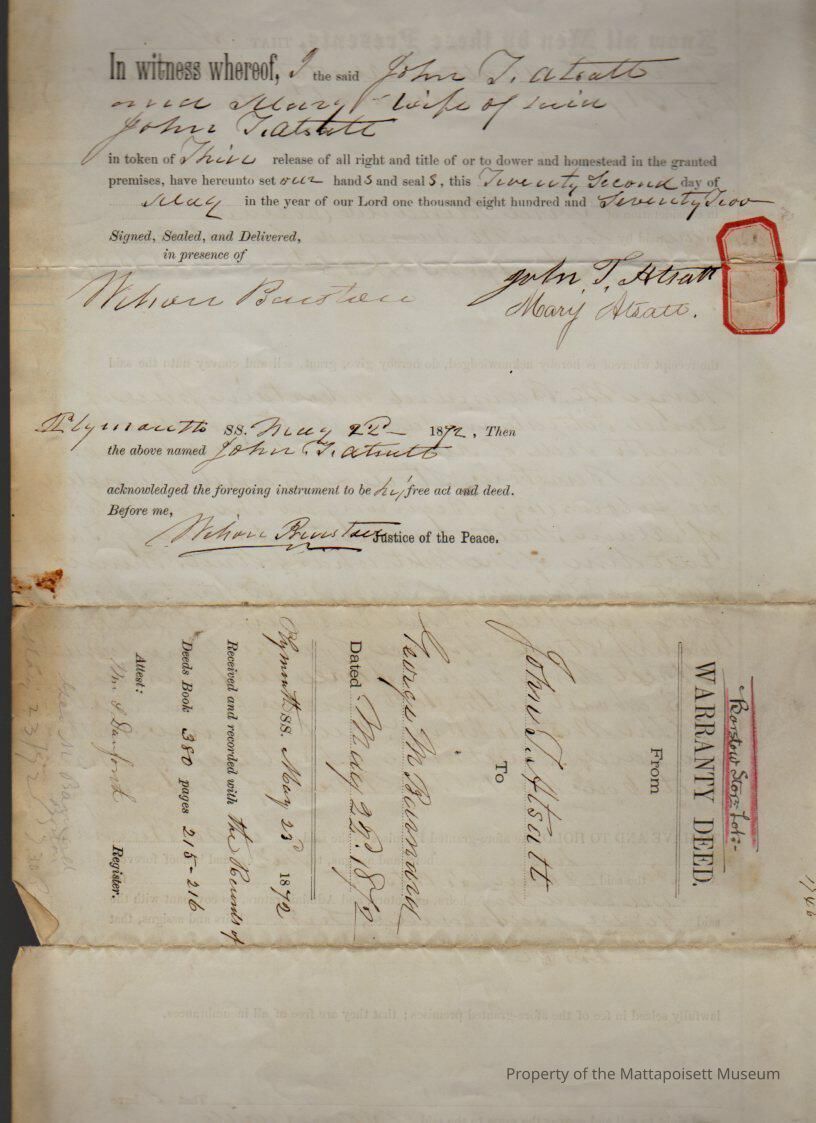 In witness whereof, I the said John T. Atsatt
and Mary wife of said
John T. Atsatt
in token of Their release of all right and title of or to dower and homestead in the granted
premises, have hereunto set our hands and seals, this Twenty Second day of
May in the year of our Lord one thousand eight hundred and Seventy Two
Signed, Sealed, and Delivered,
in presence of
Wilson Barstow
John T. Atsatt
Mary Atsatt.
Plymouth ss. May 22d 1872, Then
the above named John T. Atsatt
acknowledged the foregoing instrument to be his free act and deed.
Before me,
Wilson Barstow Justice of the Peace.
Barstow Store Lot-
WARRANTY DEED.
From
John T. Atsatt
To
George M Barnard
Dated May 22d. 1872
Plymouth ss. May 23d 1872
Received and recorded with the Records of
Deeds Book 380 pages 215-216
Attest:
Wm S Danforth Register.
Property of the Mattapoisett Museum